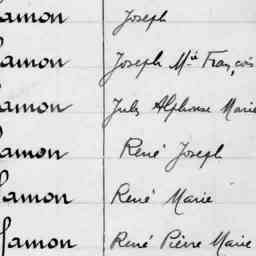 Hamon Joseph
Hamon Joseph Mie François
Hamon Jules Alphonse Marie
Hamon René Joseph
Hamon René Marie
Hamon René Pierre Marie